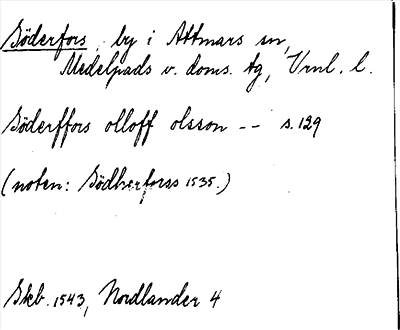 Söderfors, by i Attmars sn,
Medelpads v. doms. tg, Vrnl. l.
Söderffors olloff olsson -- s. 129
(noten: Södherforss 1535.)
Skb. 1543, Nordlander 4